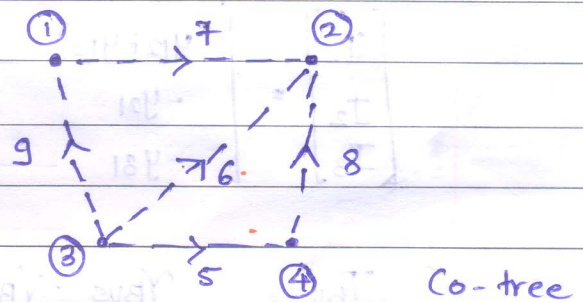 1 7 2
9 6 8
3 5 4 Co-tree